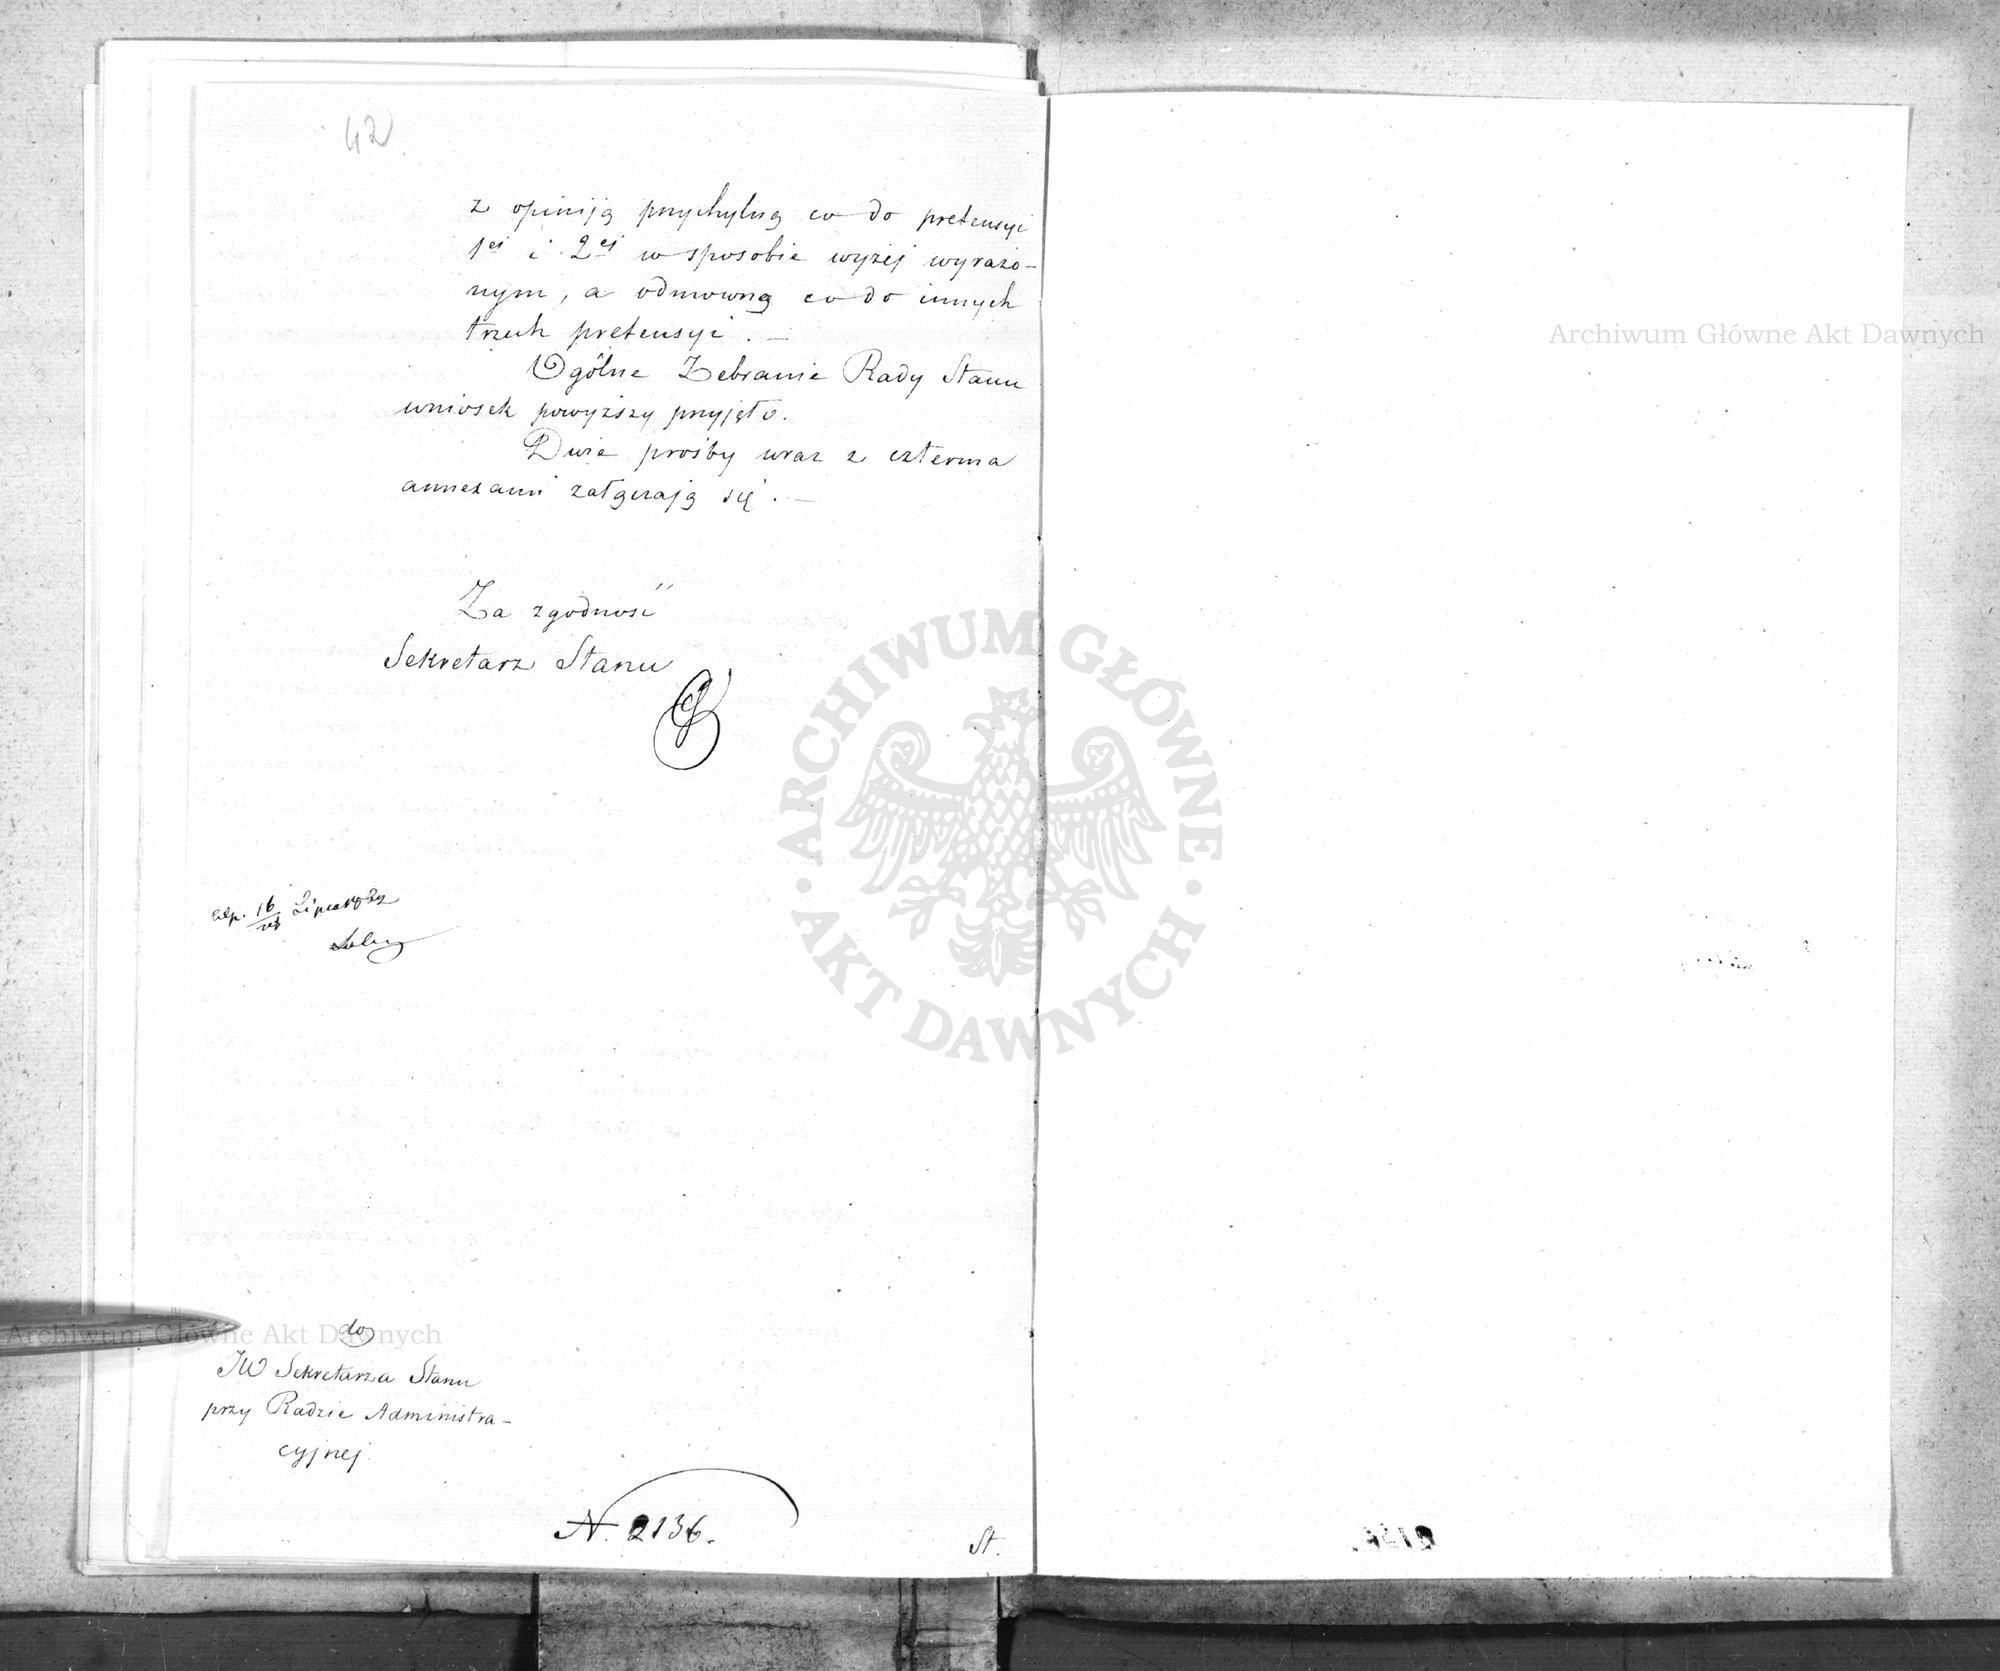 42
z opiniją przychylną co do pretensyi
1ej i 2ej w sposobie wyżej wyrażo-
nym, a odmowną co do innych
trzech pretensyi. —
Ogólne Zebranie Rady Stanu
wniosek powyższy przyjęło.
Dwie prośby wraz z czterma
annexami załączają się. —
Za zgodność
Sekretarz Stanu
16 Lipca
do
JW Sekretarza Stanu
przy Radzie Administra-
cyjnej
N. 2136.
St.
Archiwum Główne Akt Dawnych
Archiwum Główne Akt Dawnych
ARCHIWUM GŁÓWNE
AKT DAWNYCH